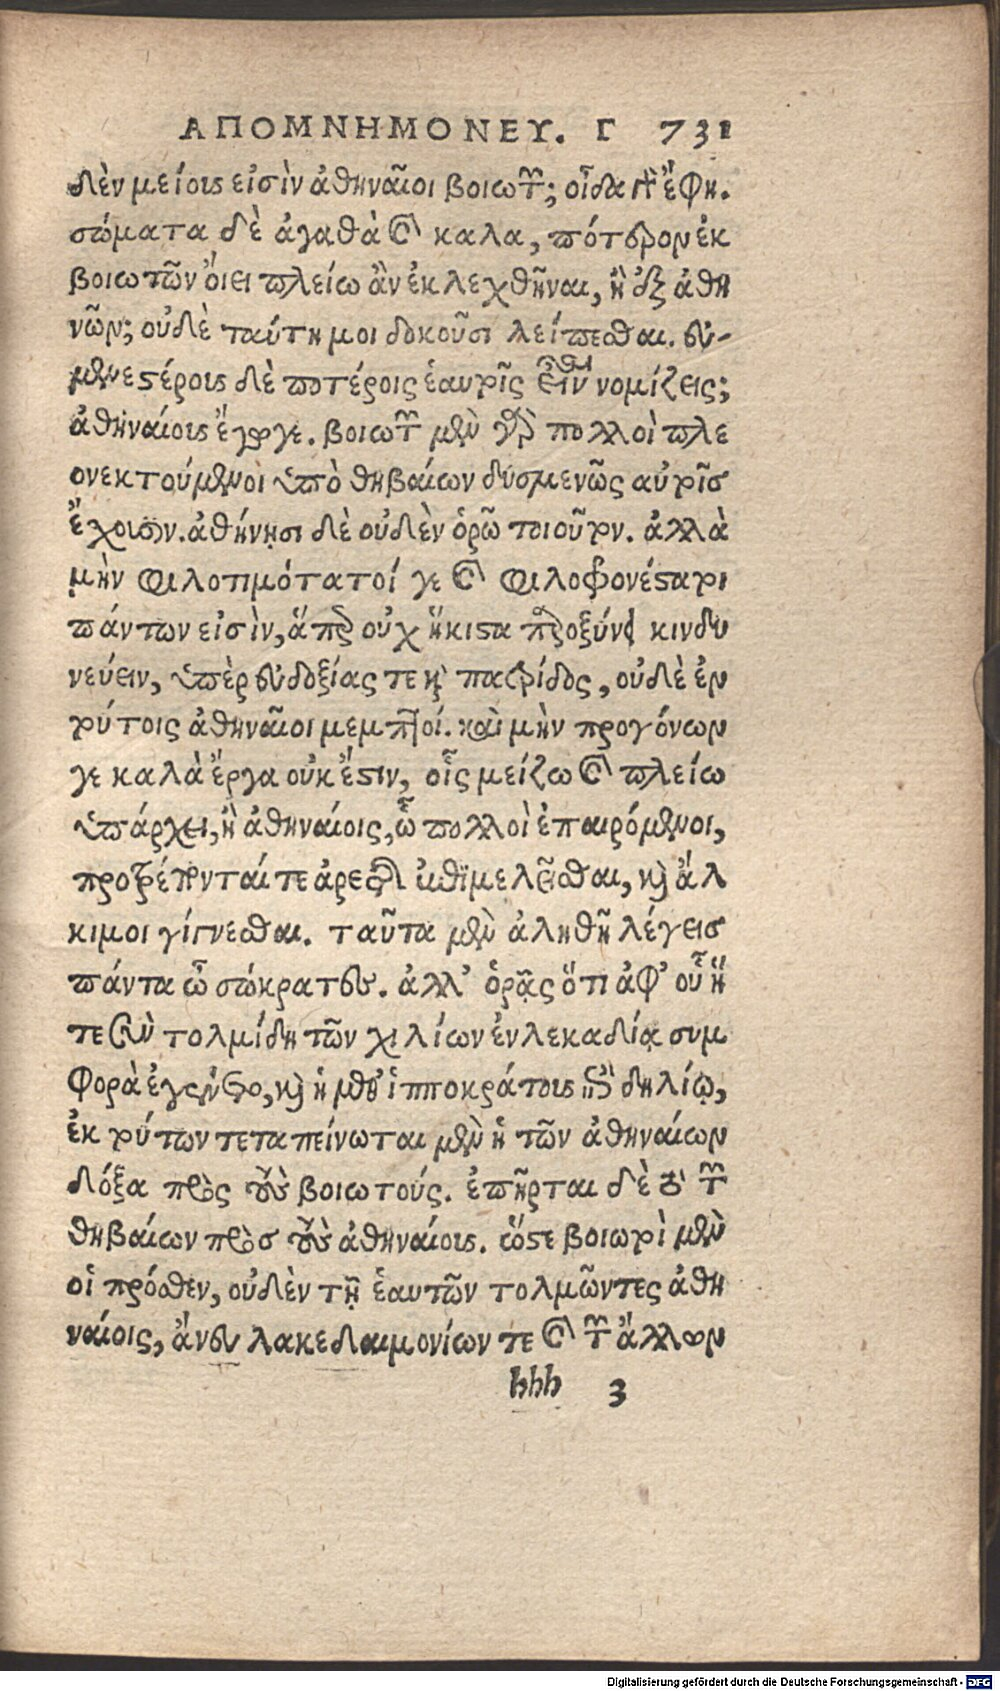 ΑΠΟΜΝΗΜΟΝΕΥ. Γ 731
δὲν μείους εἰσὶν ἀθηναῖοι βοιωτῶν; οἶδα γὰρ ἔφη.
σώματα δὲ ἀγαθὰ καὶ καλα, πότερον ἐκ
βοιωτῶν οἴει πλείω ἂν ἐκλεχθῆναι, ἢ ἐξ ἀθη
νῶν; οὐδὲ ταύτη μοι δοκοῦσι λείπεσθαι. εὐ-
μενεστέρους δὲ ποτέροις ἑαυτοῖς εἶναι νομίζεις;
ἀθηναίους ἔγωγε. βοιωτῶν μὲν γὰρ πολλοὶ πλε
ονεκτούμενοι ὑπὸ θηβαίων δυσμενῶς αὐτοῖς
ἔχουσιν. ἀθήνησι δὲ οὐδὲν ὁρῶ τοιοῦτον. ἀλλὰ
μὴν φιλοτιμότατοί γε καὶ φιλοφρονέστατοι
πάντων εἰσὶν, ἅπερ οὐχ ἥκιστα παροξύνει κινδυ
νεύειν, ὑπὲρ εὐδοξίας τε καὶ πατρίδος, οὐδὲ ἐν
τούτοις ἀθηναῖοι μεμπτοί. καὶ μὴν προγόνων
γε καλὰ ἔργα οὐκ ἔστιν, οἷς μείζω καὶ πλείω
ὑπάρχει, ἢ ἀθηναίοις, ᾧ πολλοὶ ἐπαιρόμενοι,
προτρέπονταί τε ἀρετῆς ἐπιμελεῖσθαι, καὶ ἄλ
κιμοι γίγνεσθαι. ταῦτα μὲν ἀληθῆ λέγεις
πάντα ὦ σώκρατες. ἀλλ’ ὁρᾷς ὅτι ἀφ’ οὗ ἥ
τε σὺν τολμίδη τῶν χιλίων ἐν λεκαδίᾳ συμ
φορὰ ἐγένετο, καὶ ἡ μεθ’ ἱπποκράτους ἐπὶ δηλίῳ,
ἐκ τούτων τεταπείνωται μὲν ἡ τῶν ἀθηναίων
δόξα πρὸς τοὺς βοιωτούς. ἐπῆρται δὲ τὸ τῶν
θηβαίων πρὸς τοὺς ἀθηναίους. ὥστε βοιωτοὶ μὲν
οἱ πρόσθεν, οὐδὲν τῇ ἑαυτῶν τολμῶντες ἀθη
ναίοις, ἄνευ λακεδαιμονίων τε καὶ τῶν ἄλλων
hhh 3
Digitalisierung gefördert durch die Deutsche Forschungsgemeinschaft - DFG